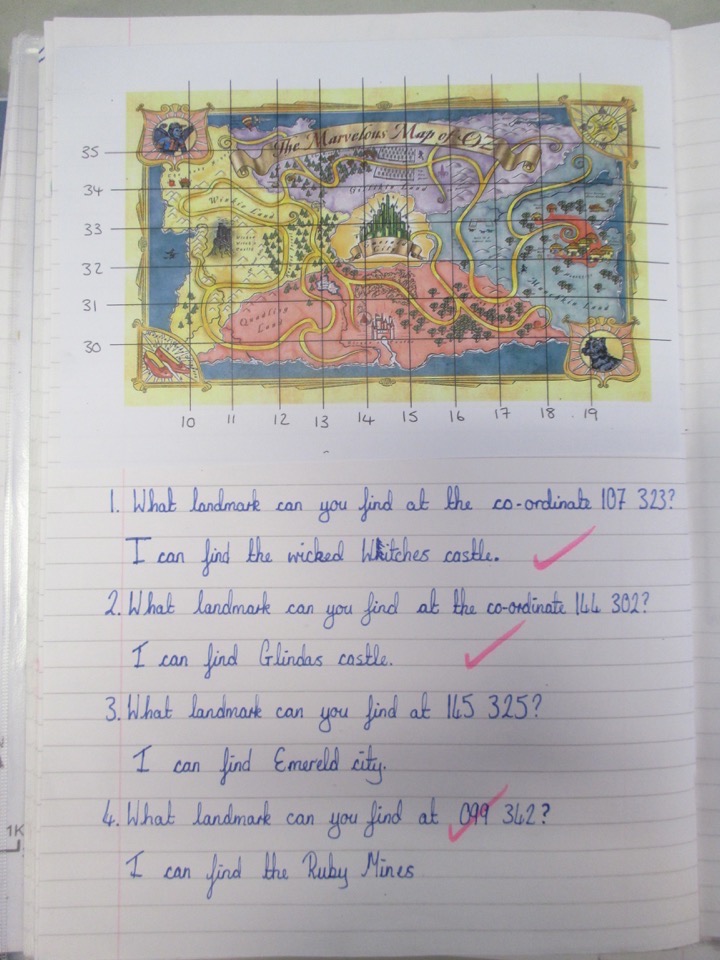 The Marvelous Map of Oz
35
34
33
32
31
30
Winkie Land
Gillikin Land
Quadling Land
Munchkin Land
10 11 12 13 14 15 16 17 18 19
1. What landmark can you find at the co-ordinate 107 323?
I can find the wicked Whitches castle.
2. What landmark can you find at the co-ordinate 144 302?
I can find Glindas castle.
3. What landmark can you find at 145 325?
I can find Emereld city.
4. What landmark can you find at 099 342?
I can find the Ruby Mines
1K